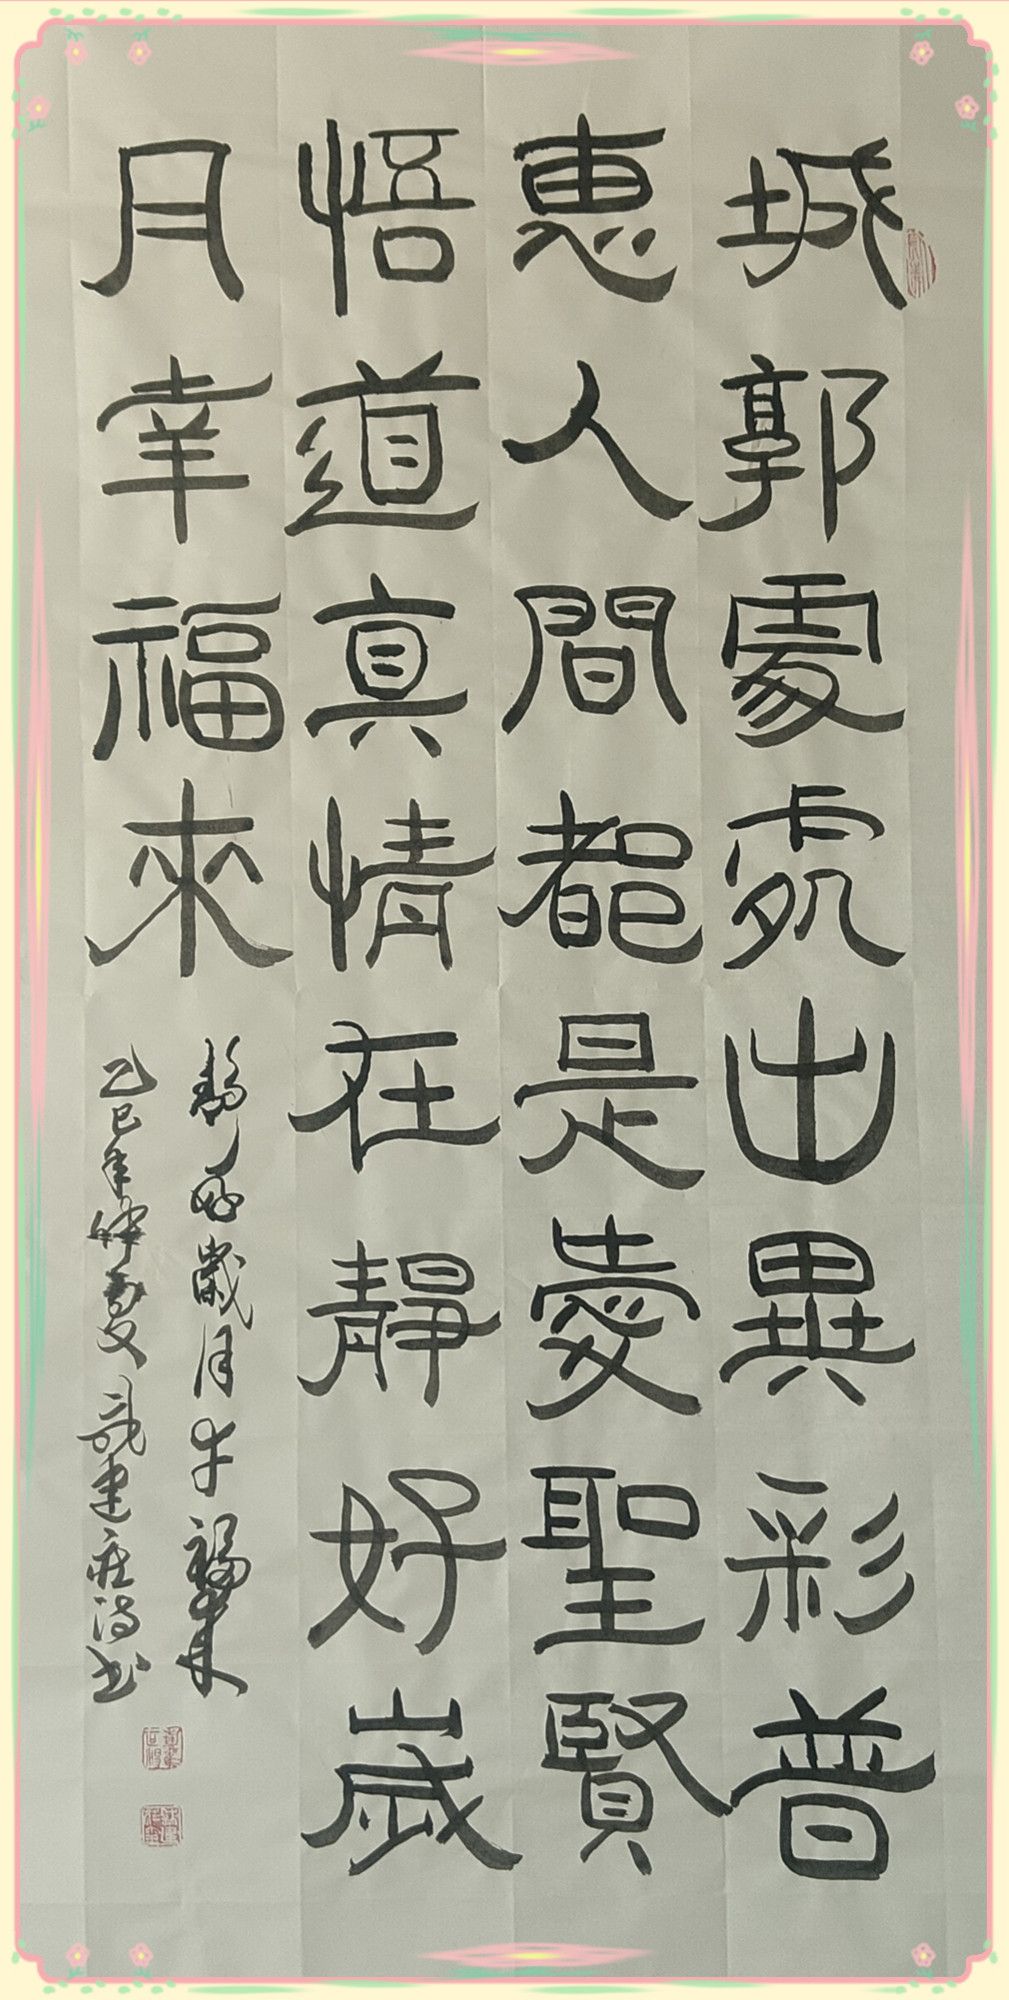 城郭處處出異彩普
惠人間都是愛聖賢
悟道真情在靜好歲
月幸福來
靜好歲月幸福來
乙巳年仲夏武建庄詩書